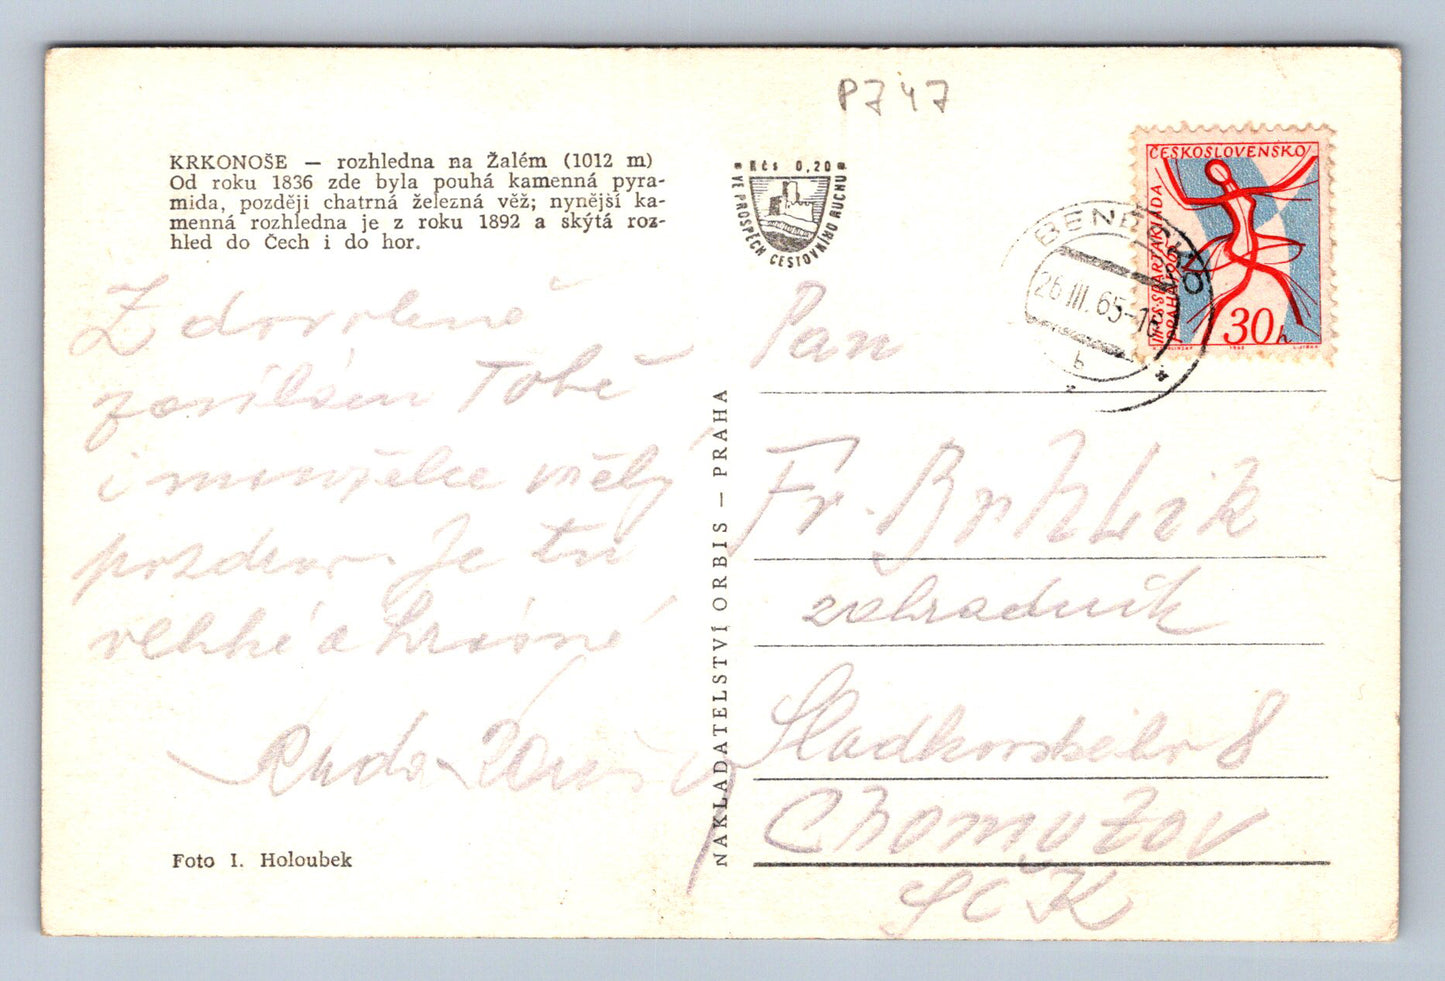 P747
KRKONOŠE — rozhledna na Žalém (1012 m)
Od roku 1836 zde byla pouhá kamenná pyra-
mida, později chatrná železná věž; nynější ka-
menná rozhledna je z roku 1892 a skýtá roz-
hled do Čech i do hor.
Kčs 0,20
VE PROSPĚCH CESTOVNÍHO RUCHU
ČESKOSLOVENSKO
III.CS.SPARTAKIÁDA
PRAHA
30h
BENECKO
26.III.65-16
b
Z dovolené
zasílám Tobě
i manželce vřelý
pozdrav. Je tu
velké a krásné
Ruda
Foto I. Holoubek
NAKLADATELSTVÍ ORBIS — PRAHA
Pan
Fr. Brhlík
zahradník
Sladkovského 8
Chomutov